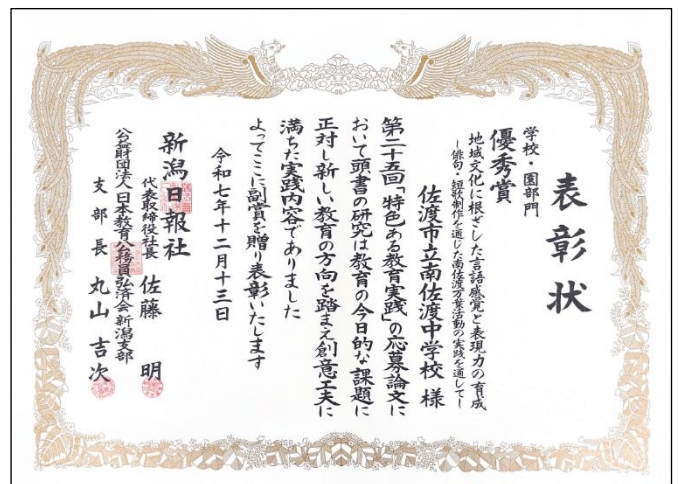 表彰状
学校・園部門
優秀賞
地域文化に根ざした言語感覚と表現力の育成
―俳句・短歌制作を通じた南佐渡万葉活動の実践を通して―
佐渡市立南佐渡中学校 様
第二十五回「特色ある教育実践」の応募論文に
おいて頭書の研究は教育の今日的な課題に
正対し新しい教育の方向を踏まえ創意工夫に
満ちた実践内容でありました
よってここに副賞を贈り表彰いたします
令和七年十二月十三日
新潟日報社
代表取締役社長 佐藤 明
公益財団法人日本教育公務員弘済会新潟支部
支部長 丸山 吉次